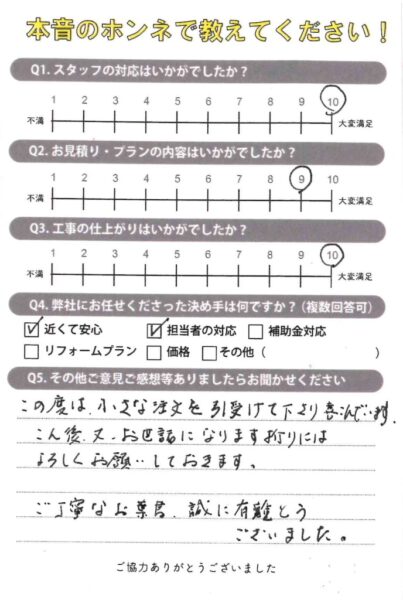 本音のホンネで教えてください！
Q1. スタッフの対応はいかがでしたか？
1 2 3 4 5 6 7 8 9 10
不満 大変満足
Q2. お見積り・プランの内容はいかがでしたか？
1 2 3 4 5 6 7 8 9 10
不満 大変満足
Q3. 工事の仕上がりはいかがでしたか？
1 2 3 4 5 6 7 8 9 10
不満 大変満足
Q4. 弊社にお任せくださった決め手は何ですか？（複数回答可）
☑ 近くて安心 ☑ 担当者の対応 □ 補助金対応
□ リフォームプラン □ 価格 □ その他（ ）
Q5. その他ご意見ご感想等ありましたらお聞かせください
この度は、小さな注文を引受けて下さり喜んでいます。
こん後、又、お世話になります折りには
よろしくお願いしておきます。
ご丁寧なお葉書、誠に有難とう
ございました。
ご協力ありがとうございました